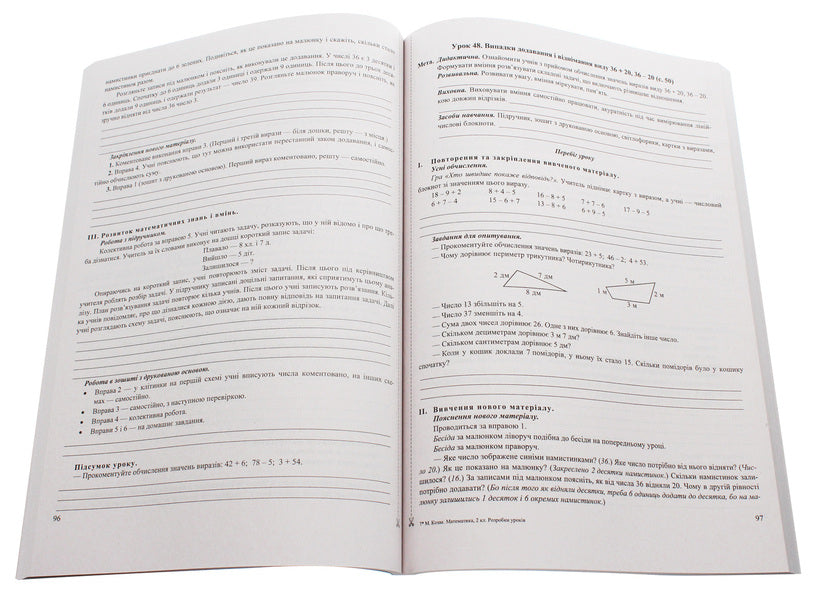 намистинки приєднати до 6 зелених. Подивіться, як це показано на малюнку і скажіть, скільки стало
намистинок разом.
Розгляньте записи під малюнком і поясніть, як виконували це додавання. У числі 36 є 3 десятки і
6 одиниць. Спочатку до 6 одиниць додали 3 одиниці і одержали 9 одиниць. Після цього до трьох деся-
тків додали 9 одиниць і одержали результат — число 39. Розгляньте малюнок праворуч і поясніть, як
зручно відняти від числа 36 число 3.
Закріплення нового матеріалу.
1. Коментоване виконання вправи 3. (Перший і третій вирази — біля дошки, решту — з місця.)
2. Вправа 4. Учні пояснюють, що тут можна використати переставний закон додавання, і самос-
тійно обчислюють суму.
3. Вправа 1 (зошит з друкованою основою). Перший вираз коментовано, решту — самостійно.
III. Розвиток математичних знань і вмінь.
Робота з підручником.
Колективна робота за вправою 5. Учні читають задачу, розказують, що у ній відомо і про що тре-
ба дізнатися. Учитель за їх словами виконує на дошці короткий запис задачі:
Плавало — 8 хл. і 7 д.
Вийшло — 5 діт.
Залишилося — ?
Опираючись на короткий запис, учні повторюють зміст задачі. Після цього під керівництвом
учителя роблять розбір задачі. У підручнику записані доцільні запитання, які сприятимуть цьому ана-
лізу. План розв'язування задачі повторює кілька учнів. Після цього учні записують розв'язання. Кіль-
ка учнів повідомляє, про що дізналися кожною дією, дають повну відповідь на запитання задачі. Далі
учні розглядають схему задачі, пояснюють, що означає на ній кожний відрізок.
Робота в зошиті з друкованою основою.
• Вправа 2 — у клітинки на першій схемі учні вписують числа коментовано, на інших схе-
мах — самостійно.
• Вправа 3 — самостійно, з наступною перевіркою.
• Вправа 4 — колективна робота.
• Вправи 5 і 6 — на домашнє завдання.
Підсумок уроку.
— Прокоментуйте обчислення значень виразів: 42 + 6; 78 – 5; 3 + 54.
96
Урок 48. Випадки додавання і віднімання виду 36 + 20, 36 – 20 (с. 50)
Мета. Дидактична. Ознайомити учнів з прийомом обчислення значень виразів виду 36 + 20, 36 – 20.
Формувати вміння розв'язувати складені задачі, що включають різницеве відношення.
Розвивальна. Розвивати увагу, вміння міркувати, пам'ять.
Виховна. Виховувати вміння самостійно працювати, акуратність під час вимірювання ліній-
кою довжин відрізків.
Засоби навчання. Підручник, зошит з друкованою основою, світлофорики, картки з виразами,
числові блокноти.
Перебіг уроку
I. Повторення та закріплення вивченого матеріалу.
Усні обчислення.
Гра «Хто швидше покаже відповідь?». Учитель піднімає картку з виразом, а учні — числовий
блокнот зі значенням цього виразу.
18 – 9 + 2 8 + 4 – 5 16 – 8 + 5 7 + 7 – 6 17 – 9 – 5
6 + 7 – 4 15 – 6 + 7 13 – 8 + 6 6 + 9 – 5
Завдання для опитування.
— Прокоментуйте обчислення значень виразів: 23 + 5; 46 – 2; 4 + 53.
— Чому дорівнює периметр трикутника? Чотирикутника?
2 дм 7 дм 8 дм
5 м 1 м 2 м 3 м
— Число 13 збільшіть на 5.
— Число 37 зменшіть на 4.
— Сума двох чисел дорівнює 26. Одне з них дорівнює 6. Знайдіть інше число.
— Скільком дециметрам дорівнює 3 м 7 дм?
— Скільком сантиметрам дорівнює 5 дм?
— Коли у кошик доклали 7 помідорів, у ньому їх стало 15. Скільки помідорів було у кошику
спочатку?
II. Вивчення нового матеріалу.
Пояснення нового матеріалу.
Проводиться за вправою 1.
Бесіда за малюнком ліворуч подібна до бесіди на попередньому уроці.
Бесіда за малюнком праворуч.
— Яке число зображене синіми намистинками? (36.) Яке число потрібно від нього відняти? (Чис-
ло 20.) Як це показано на малюнку? (Закреслено 2 десятки намистинок.) Скільки намистинок зали-
шилося? (16.) За записами під малюнком поясніть, як від числа 36 відняли 20. Чому в другій рівності
потрібно додавати? (Бо після того як відняли десятки, треба 6 одиниць додати до десятка, бо на ма-
люнку залишились 1 десяток і 6 окремих намистинок.)
7* М. Козак. Математика, 2 кл. Розробки уроків
97